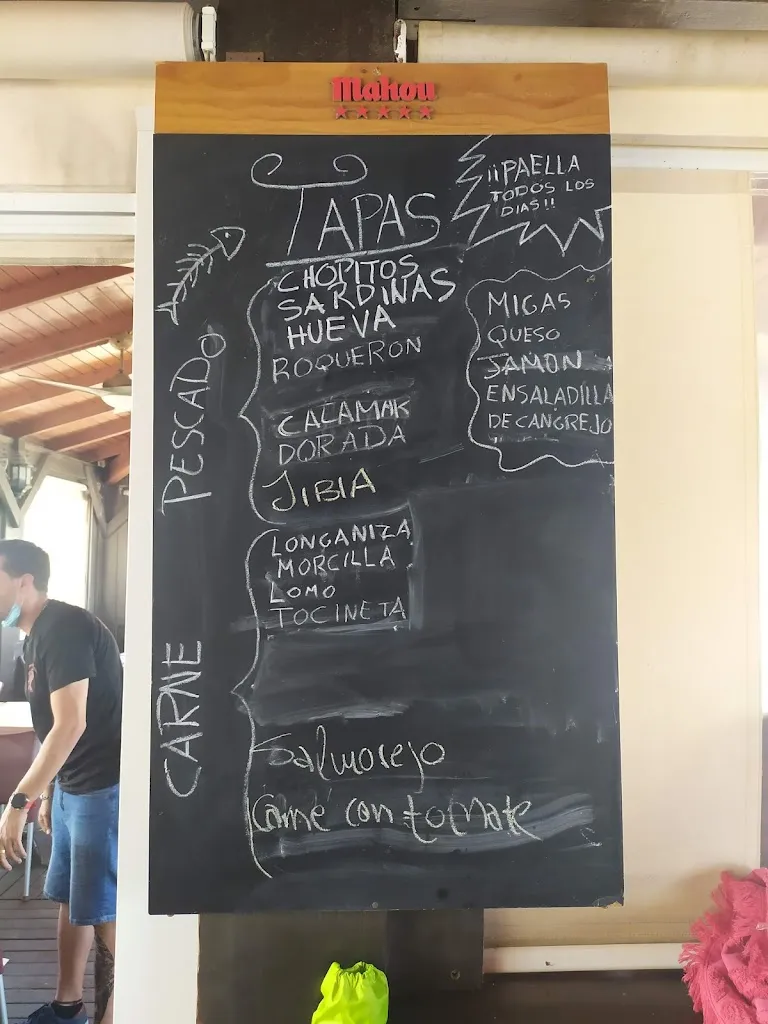 Mahou
TAPAS
¡¡PAELLA
TODOS LOS
DIAS!!
PESCADO
CHOPITOS
SARDINAS
HUEVA
BOQUERON
CALAMAR
DORADA
JIBIA
MIGAS
QUESO
JAMON
ENSALADILLA
DE CANGREJO
CARNE
LONGANIZA
MORCILLA
LOMO
TOCINETA
Salmorejo
Carne con tomate